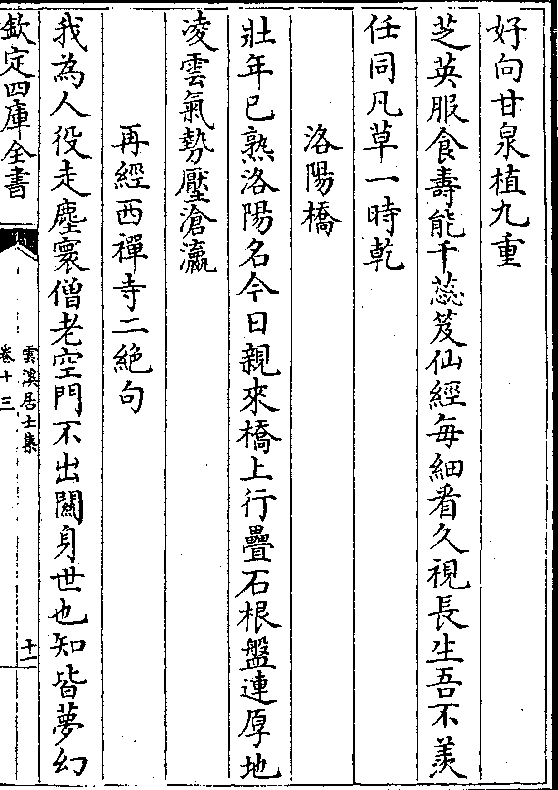 好向甘泉植九重
芝英服食壽能千蕊笈仙經每細看久視長生吾不羨
任同凡草一時乾
洛陽橋
壯年已熟洛陽名今日親來橋上行疊石根盤連厚地
凌雲氣勢壓滄瀛
再經西禪寺二絶句
我為人役走塵寰僧老空門不出關身世也知皆夢幻
欽定四庫全書
雲溪居士集
卷十三
十一